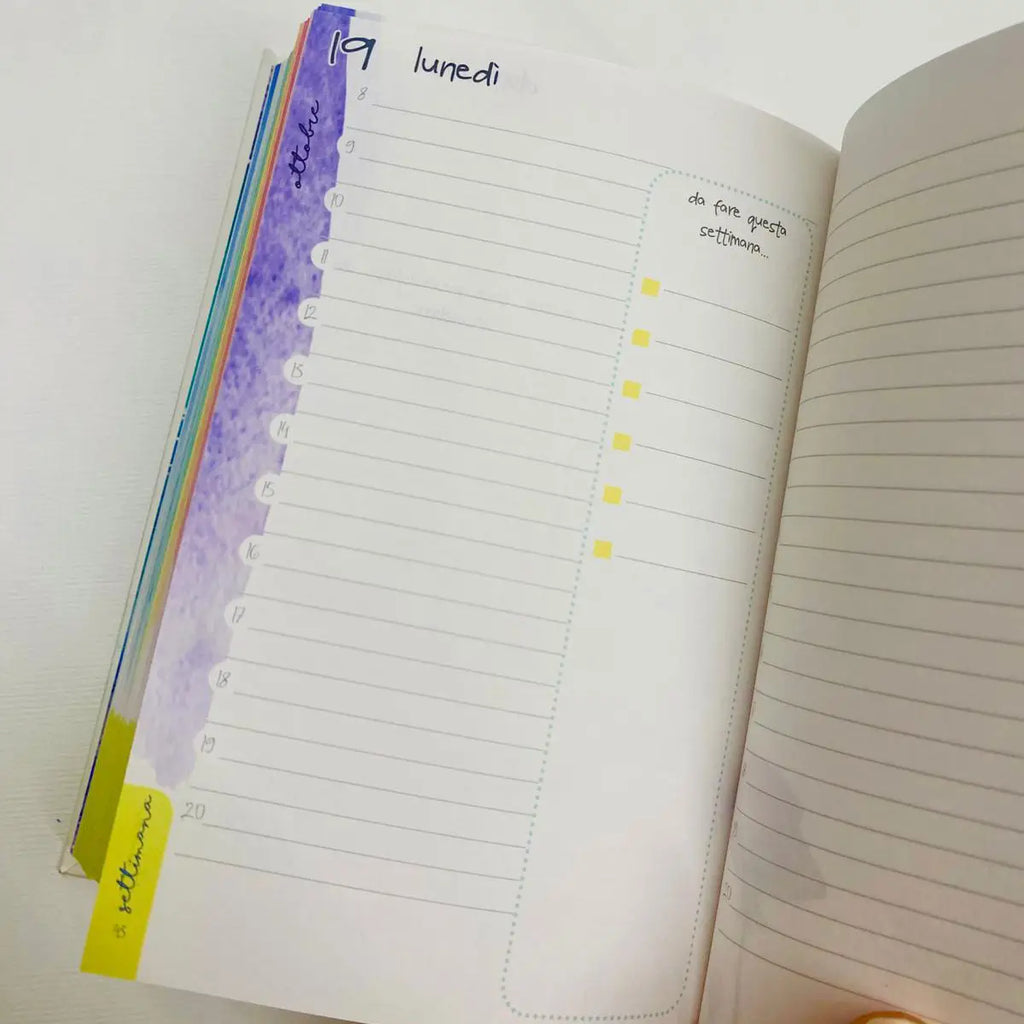 19 lunedì
ottobre
8
9
10
11
12
13
14
15
16
17
18
19
20
da fare questa
settimana...
settimana